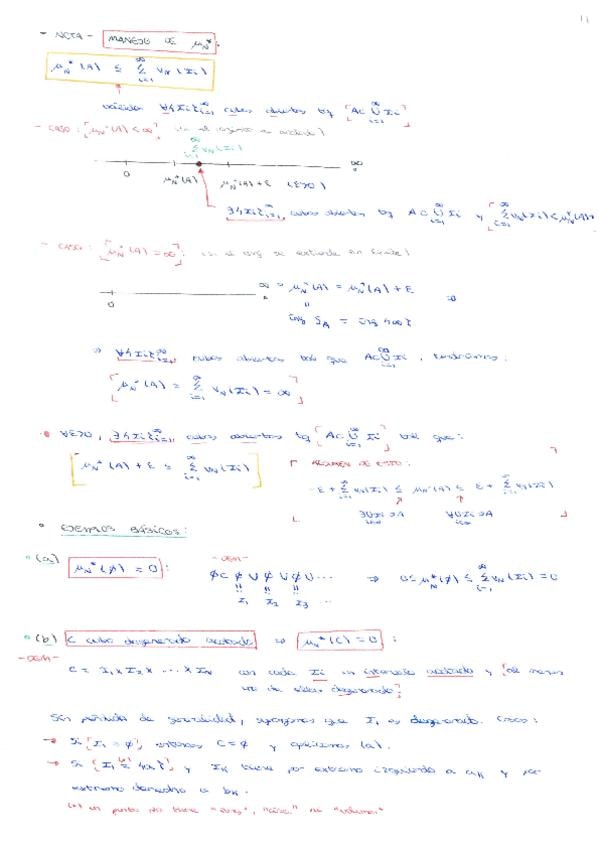 11
- NOTA - MANEJO DE μ_N^*.
μ_N^*(A) ≤ Σ_{i=1}^∞ v_N(I_i)
∀{I_i}_{i=1}^∞ cubos abiertos tq A⊂∪_{i=1}^∞ I_i
- CASO: μ_N^*(A) < ∞
Σ_{i=1}^∞ v_N(I_i)
0 μ_N^*(A) μ_N^*(A)+ε (ε>0) ∞
∃{I_i}_{i=1}^∞ cubos abiertos tq A⊂∪_{i=1}^∞ I_i y Σ_{i=1}^∞ v_N(I_i) ≤ μ_N^*(A)+
- CASO: μ_N^*(A) = ∞
0 ∞ = μ_N^*(A) = μ_N^*(A) + ε ⇒
"
ínf S_A = ínf {∞}
⇒ ∀{I_i}_{i=1}^∞ cubos abiertos tal que A⊂∪_{i=1}^∞ I_i, tendríamos:
μ_N^*(A) = Σ_{i=1}^∞ v_N(I_i) = ∞
• ∀ε>0, ∃{I_i}_{i=1}^∞ cubos abiertos tq A⊂∪_{i=1}^∞ I_i tal que:
μ_N^*(A) + ε ≥ Σ_{i=1}^∞ v_N(I_i)
RESUMEN DE ESTO:
-ε + Σ_{i=1}^∞ v_N(I_i) ≤ μ_N^*(A) ≤ ε + Σ_{i=1}^∞ v_N(I_i)
∃∪I_i⊃A ∀∪I_i⊃A
• EJEMPLOS BÁSICOS:
(a) μ_N^*(∅) = 0:
- DEM -
∅ ⊂ ∅ ∪ ∅ ∪ ∅ ∪ ... ⇒ 0 ≤ μ_N^*(∅) ≤ Σ_{i=1}^∞ v_N(I_i) = 0
I_1 I_2 I_3 ...
(b) C cubo degenerado acotado ⇒ μ_N^*(C) = 0:
- DEM -
C = I_1 × I_2 × ... × I_N con cada I_i un intervalo acotado y de
uno de ellos degenerado
Sin pérdida de generalidad, supongamos que I_1 es degenerado. Casos:
→ Si I_1 = ∅, entonces C = ∅ y aplicamos (a).
→ Si I_1 = {x_1} y I_k tiene por extremo izquierdo a a_k y por
extremo derecho a b_k.
(*) un punto no tiene "área" ni "volumen"